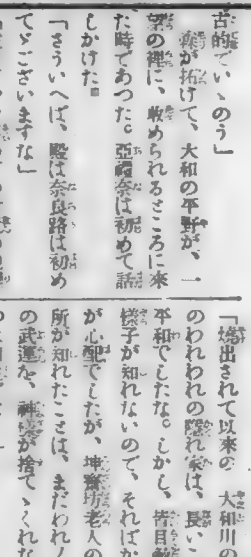 古的でいゝのう」
が拓けて、大和の平野が、一
望の裡に、歛められるところに來
た時であつた。亞禮奈は初めて話
しかけた。
「さういへば、殿は奈良路は初め
てゞございますな」
「燒出されて以來の、大和川の
のわれわれの隱れ家は、長いこ
平和でしたな。しかし、皆目
樣子が知れないので、そればか
が心配でしたが、坤齋坊老人の
所が知れたことは、まだわれ
の武運を、神樣が捨てゝくれな